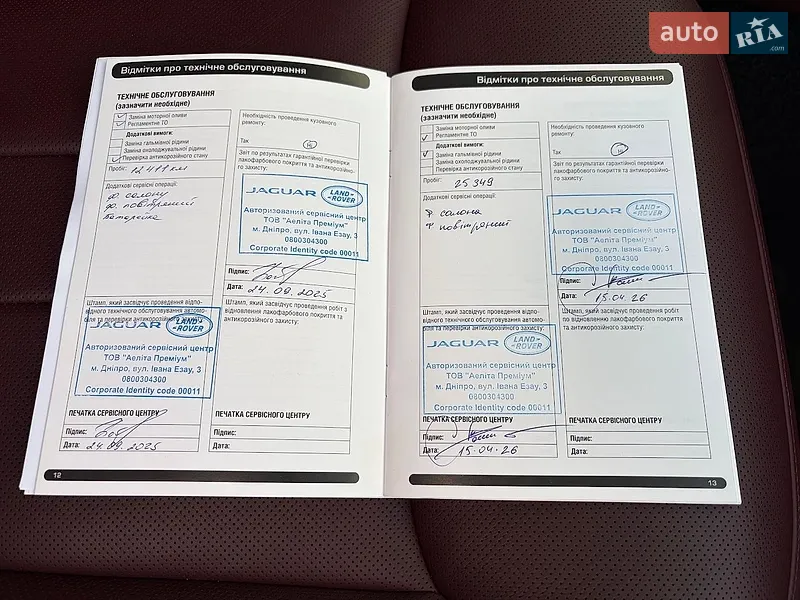 auto RIA .com
Відмітки про технічне обслуговування
ТЕХНІЧНЕ ОБСЛУГОВУВАННЯ
(зазначити необхідне)
Заміна моторної оливи
Регламентне ТО
Додаткові вимоги:
Заміна гальмівної рідини
Заміна охолоджувальної рідини
Перевірка антикорозійного стану
Пробіг: 12 411 км
Додаткові сервісні операції:
ф. салону
ф. повітряний
батарейка
Необхідність проведення кузовного
ремонту:
Так
Ні
Звіт по результатах гарантійної перевірки
лакофарбового покриття та антикорозійно-
го захисту:
JAGUAR LAND-ROVER
Авторизований сервісний центр
ТОВ "Аеліта Преміум"
м. Дніпро, вул. Івана Езау, 3
0800304300
Corporate Identity code 00011
Підпис:
Дата: 24.09.2025
Штамп, який засвідчує проведення відпо-
відного технічного обслуговування автомо-
біля та перевірки антикорозійного захисту:
JAGUAR LAND-ROVER
Авторизований сервісний центр
ТОВ "Аеліта Преміум"
м. Дніпро, вул. Івана Езау, 3
0800304300
Corporate Identity code 00011
ПЕЧАТКА СЕРВІСНОГО ЦЕНТРУ
Підпис:
Дата: 24.09.2025
Штамп, який засвідчує проведення робіт з
відновлення лакофарбового покриття та
антикорозійного захисту:
ПЕЧАТКА СЕРВІСНОГО ЦЕНТРУ
Підпис:
Дата:
12
Відмітки про технічне обслуговування
ТЕХНІЧНЕ ОБСЛУГОВУВАННЯ
(зазначити необхідне)
Заміна моторної оливи
Регламентне ТО
Додаткові вимоги:
Заміна гальмівної рідини
Заміна охолоджувальної рідини
Перевірка антикорозійного стану
Пробіг: 25 349
Додаткові сервісні операції:
ф салона
ф повітряний
Необхідність проведення кузовного
ремонту:
Так
Ні
Звіт по результатах гарантійної перевірки
лакофарбового покриття та антикорозійно-
го захисту:
JAGUAR LAND-ROVER
Авторизований сервісний центр
ТОВ "Аеліта Преміум"
м. Дніпро, вул. Івана Езау, 3
0800304300
Corporate Identity code 00011
Підпис:
Дата: 15.04.26
Штамп, який засвідчує проведення відпо-
відного технічного обслуговування автомо-
біля та перевірки антикорозійного захисту:
JAGUAR LAND-ROVER
Авторизований сервісний центр
ТОВ "Аеліта Преміум"
м. Дніпро, вул. Івана Езау, 3
0800304300
Corporate Identity code 00011
ПЕЧАТКА СЕРВІСНОГО ЦЕНТРУ
Підпис:
Дата: 15.04.26
Штамп, який засвідчує проведення робіт
по відновленню лакофарбового покриття та
антикорозійного захисту:
ПЕЧАТКА СЕРВІСНОГО ЦЕНТРУ
Підпис:
Дата:
13